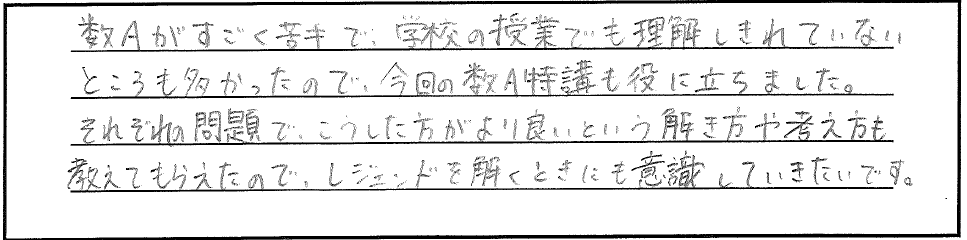 数Aがすごく苦手で、学校の授業でも理解しきれていない
ところも多かったので、今回の数A特講も役に立ちました。
それぞれの問題で、こうした方がより良いという解き方や考え方も
教えてもらえたので、レジェンドを解くときにも意識していきたいです。